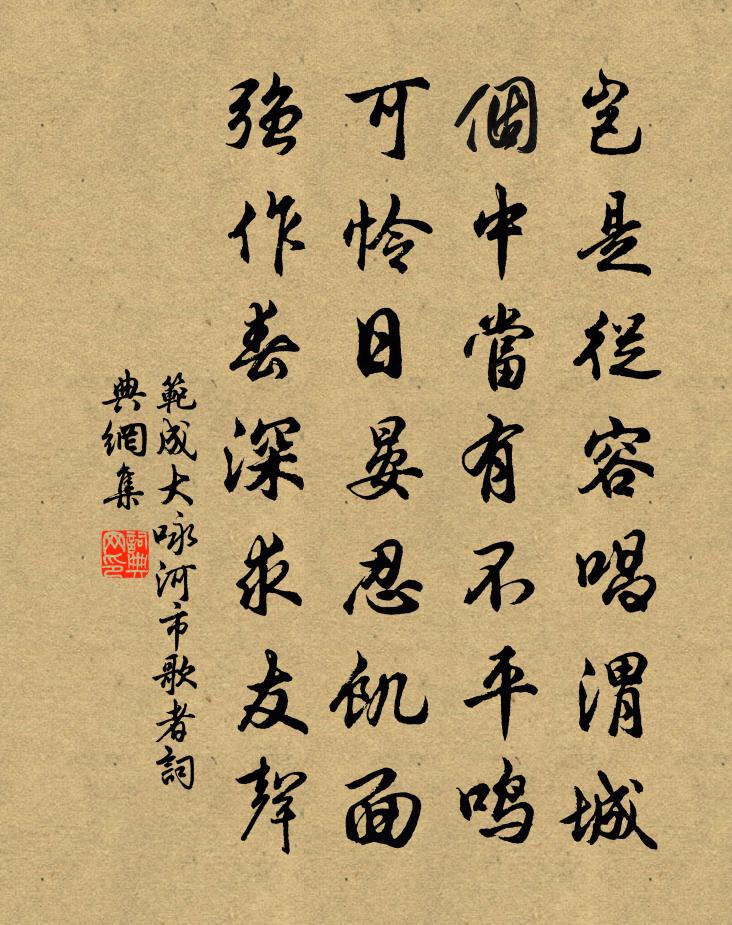 豈是從容唱渭城
個中當有不平鳴
可憐日晏忍飢面
強作春深求友聲
範成大咏河市歌者詞
典網集
詞典
网印